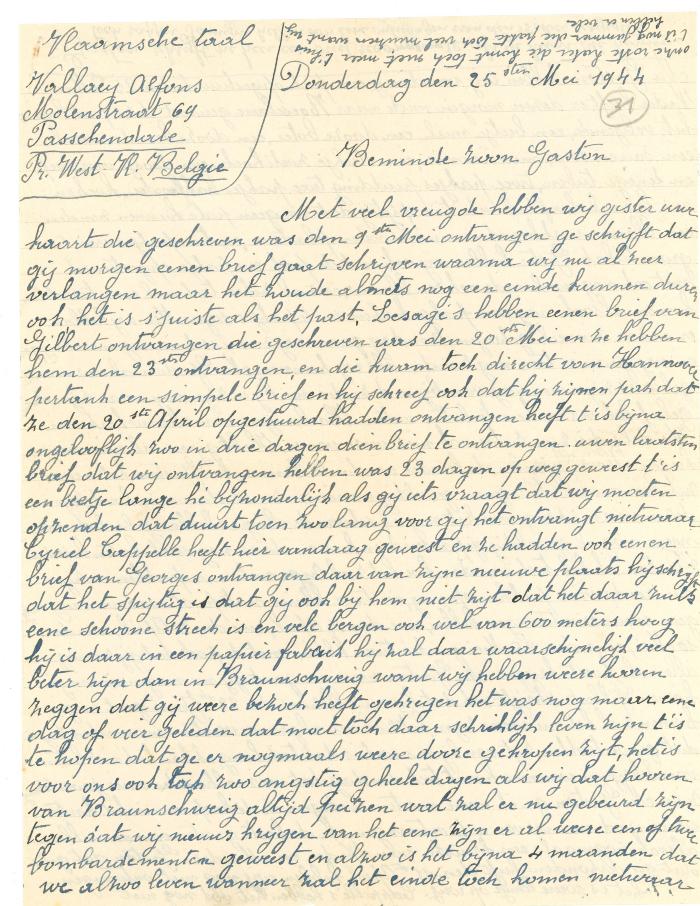 Vlaamsche taal
Vallaey Alfons
Molenstraat 69
Passchendale
Pr. West-Vl. België
onze rosse kater die komt toch niet meer t'huis
t'is nog jammer die pakte toch veel muizen want wij
hebben er vele
Donderdag den 25ste Mei 1944
31
Beminde zoon Gaston
Met veel vreugde hebben wij gister uwe
kaart die geschreven was den 9ste Mei ontvangen ge schrijft dat
gij morgen eenen brief gaat schrijven waarna wij nu al zeer
verlangen maar het zoude almets nog een einde kunnen duren
ook het is s'juiste als het past, Lesage's hebben eenen brief van
Gilbert ontvangen die geschreven was den 20ste Mei en ze hebben
hem den 23ste ontvangen en die kwam toch direct van Hannover
pertank een simpele brief en hij schreef ook dat hij zijnen pak dat
ze den 20ste April opgestuurd hadden ontvangen heeft t'is bijna
ongelooflijk zoo in drie dagen dien brief te ontvangen. uwen laatsten
brief dat wij ontvangen hebben was 23 dagen op weg geweest t'is
een beetje lange hé bijzonderlijk als gij iets vraagt dat wij moeten
opzenden dat duurt toen zoo lang voor gij het ontvangt nietwaar
Cyriel Cappelle heeft hier vandaag geweest en ze hadden ook eenen
brief van Georges ontvangen daar van zijne nieuwe plaats hij schrijft
dat het spijtig is dat gij ook bij hem niet zijt dat het daar zulks
eene schoone streek is en vele bergen ook wel van 600 meters hoog
hij is daar in een papier fabriek hij zal daar waarschijnelijk veel
beter zijn dan in Braunschweig want wij hebben weere hooren
zeggen dat gij weere bezoek heeft gekregen het was nog maar eene
dag of vier geleden dat moet toch daar schriklijk leven zijn t'is
te hopen dat ge er nogmaals weere doore gekropen zijt, het is
voor ons ook toch zoo angstig geheele dagen als wij dat hooren
van Braunschweig altijd peizen wat zal er nu gebeurd zijn
tegen dat wij nieuws krijgen van het eene zijn er al weere een of twee
bombardementen geweest en alzoo is het bijna 4 maanden dat
we alzoo leven wanneer zal het einde toch komen nietwaar